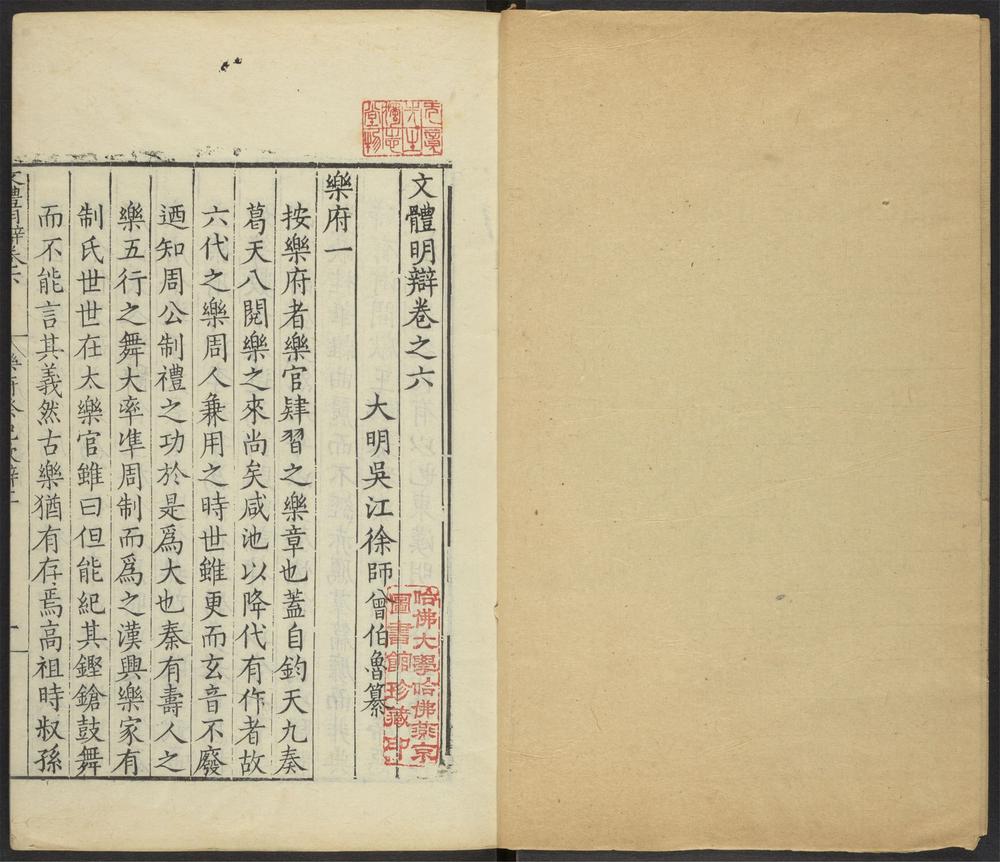 文體明辯卷之六
大明吳江徐師曾伯魯纂
樂府一
按樂府者樂官肄習之樂章也蓋自鈞天九奏
葛天八闋樂之來尚矣咸池以降代有作者故
六代之樂周人兼用之時世雖更而玄音不廢
迺知周公制禮之功於是爲大也秦有壽人之
樂五行之舞大率準周制而爲之漢興樂家有
制氏世世在太樂官雖曰但能紀其鏗鎗鼓舞
而不能言其義然古樂猶有存焉高祖時叔孫
文體明辯卷六
哈佛大學哈佛燕京
圖書館珍藏印